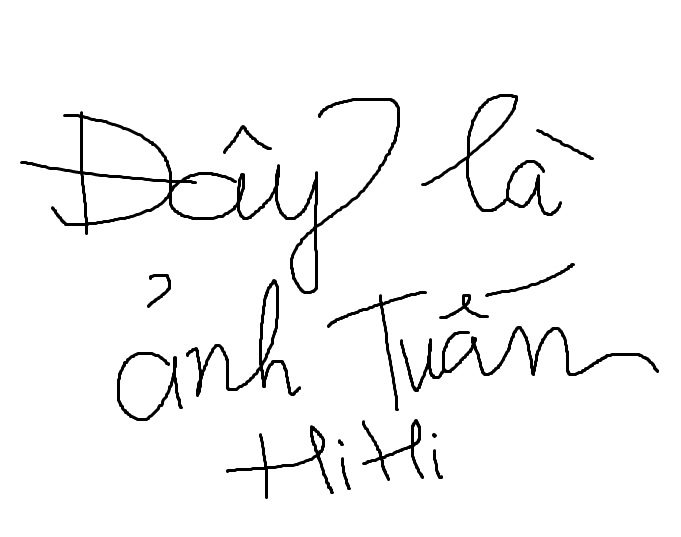 Đây là
ảnh Tuấn
HiHi